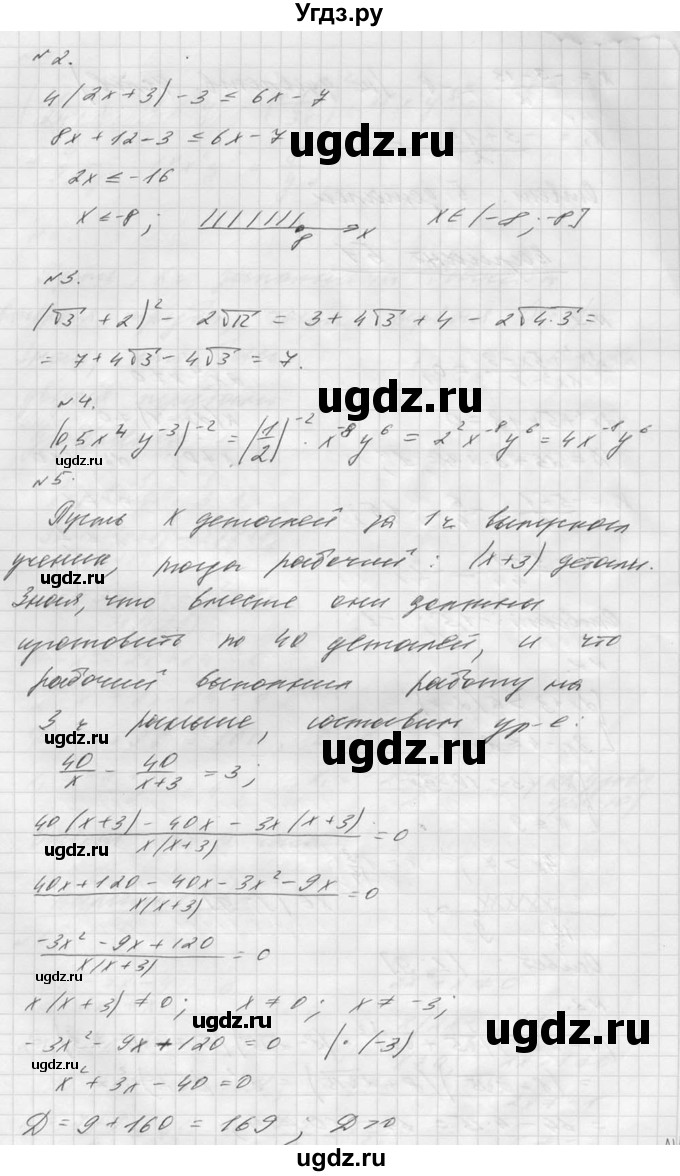 Угдз.ру
№2.
4(2x+3) - 3 ≤ 6x - 7
8x + 12 - 3 ≤ 6x - 7
ugdz.ru
2x ≤ -16
x ≤ -8; -8 x x ∈ (-8; -8]
№3.
(√3 + 2)² - 2√12 = 3 + 4√3 + 4 - 2√4·3 =
= 7 + 4√3 - 4√3 = 7.
ugdz.ru
№4.
(0,5x⁴y⁻³)⁻² = (1/2)⁻² · x⁻⁸y⁶ = 2²x⁻⁸y⁶ = 4x⁻⁸y⁶
№5.
Пусть x деталей за 1 ч. выпускал
ученик, тогда рабочий: (x+3) детали.
ugdz.ru
Зная, что вместе они должны
изготовить по 40 деталей, и что
рабочий выполнил работу на
3 ч раньше, составим ур-е:
ugdz.ru
40/x - 40/(x+3) = 3;
ugdz.ru
(40(x+3) - 40x - 3x(x+3))/(x(x+3)) = 0
ugdz.ru
(40x + 120 - 40x - 3x² - 9x)/(x(x+3)) = 0
(-3x² - 9x + 120)/(x(x+3)) = 0
ugdz.ru
x(x+3) ≠ 0; x ≠ 0; x ≠ -3;
ugdz.ru
ugdz.ru
-3x² - 9x + 120 = 0 |·(-3)
x² + 3x - 40 = 0
D = 9 + 160 = 169; D > 0
ugdz.ru